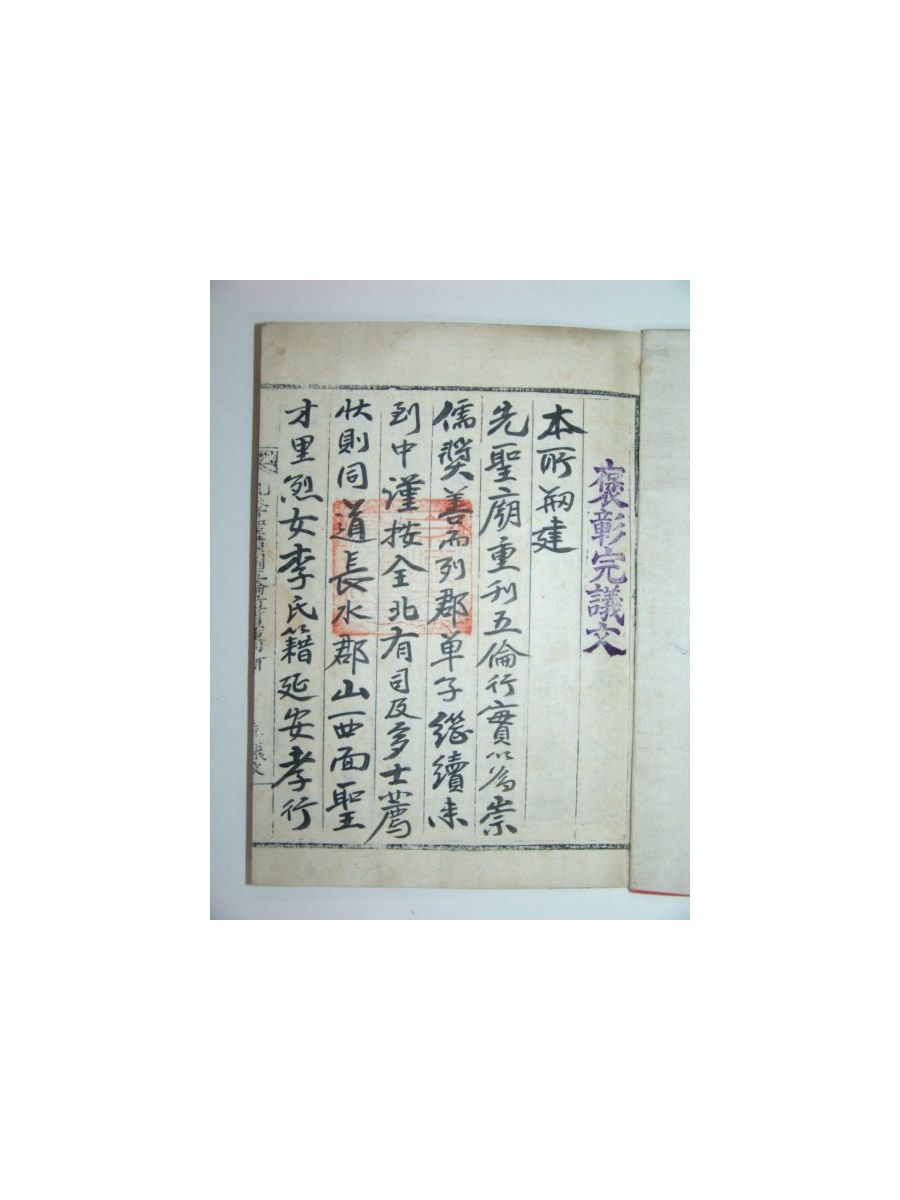 褒彰完議文
本所刱建
先聖廟重刊五倫行實以爲崇
儒奬善而列郡單子繼續来
到中謹按全北有司及多士薦
狀則同道長水郡山西面聖
才里烈女李氏籍延安孝行